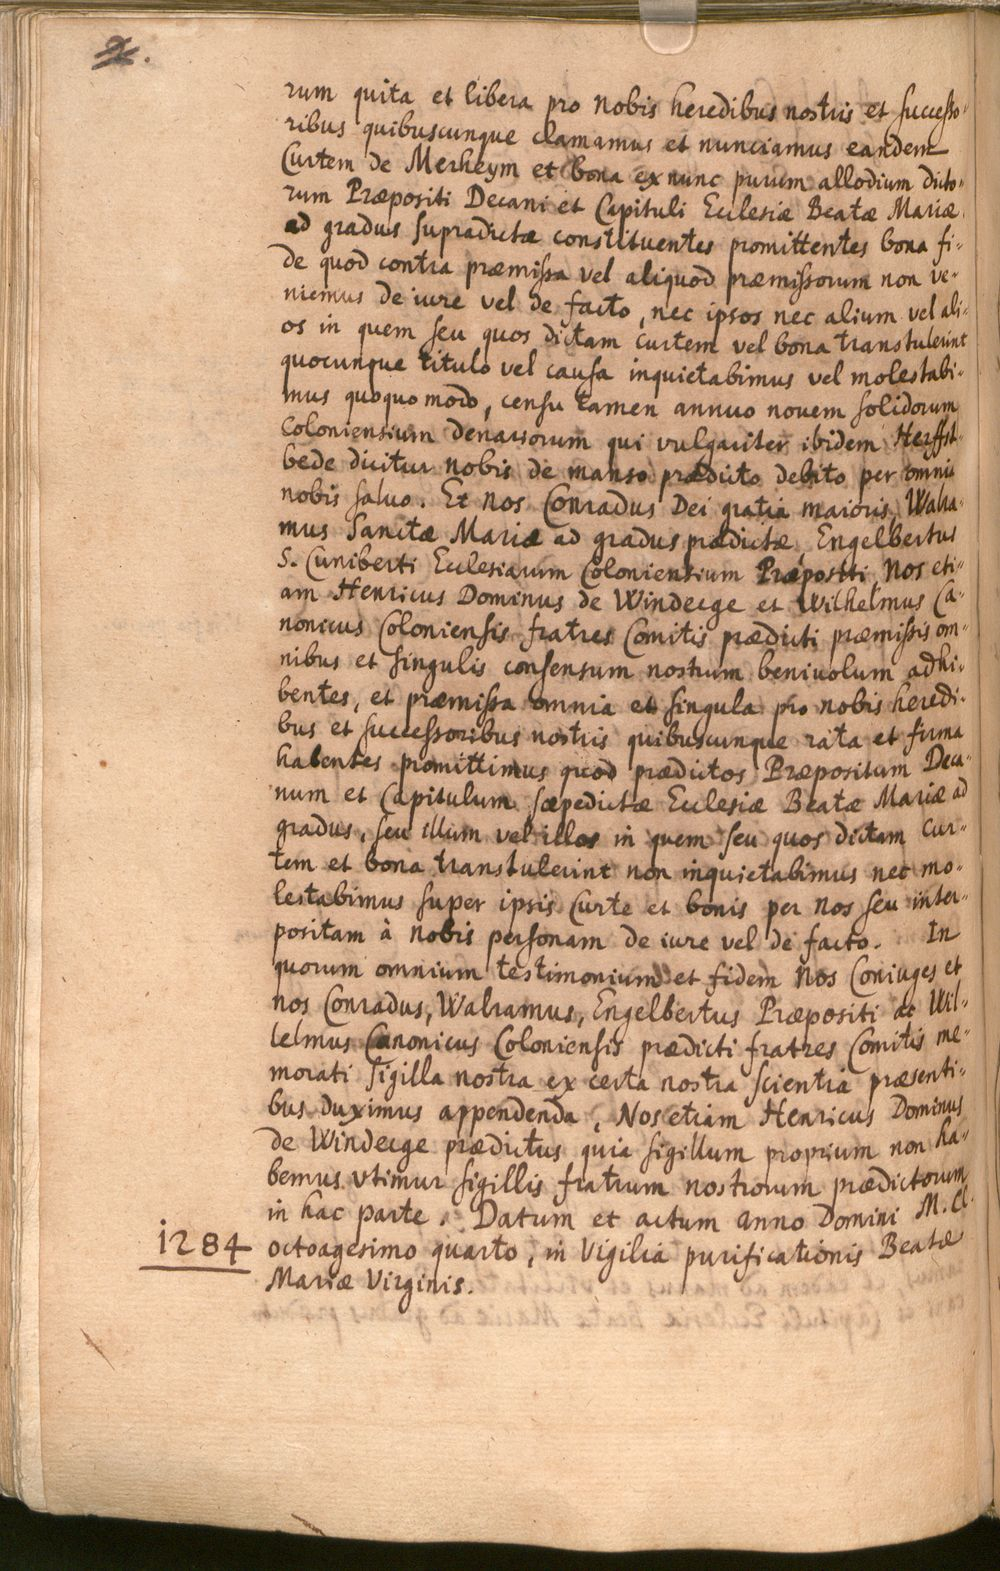 2.
rum quita et libera pro nobis heredibus nostris et successo-
ribus quibuscunque clamamus et nunciamus eandem
Curtem de Merheym et bona ex nunc purum allodium dicto-
rum Præpositi Decani et Capituli Ecclesiæ Beatæ Mariæ
ad gradus supradictæ constituentes promittentes bona fi-
de quod contra præmissa vel aliquod præmissorum non ve-
niemus de iure vel de facto, nec ipsos nec alium vel ali-
os in quem seu quos dictam curtem vel bona transtulerint
quocunque titulo vel causa inquietabimus vel molestabi-
mus quoquo modo, censu tamen annuo novem solidorum
Coloniensium denariorum qui vulgariter ibidem Herffst-
bede dicitur nobis de manso prædicto debito per omnia
nobis salvo. Et nos Conradus Dei gratia maioris, Walra-
mus Sanctæ Mariæ ad gradus prædictæ, Engelbertus
S. Cuniberti Ecclesiarum Coloniensium Præpositi, Nos eti-
am Henricus Dominus de Windecge et Wilhelmus Ca-
nonicus Coloniensis fratres Comitis prædicti præmissis om-
nibus et singulis consensum nostrum benivolum adhi-
bentes, et præmissa omnia et singula pro nobis heredi-
bus et successoribus nostris quibuscunque rata et firma
habentes promittimus quod prædictos Præpositum Deca-
num et Capitulum sæpedictæ Ecclesiæ Beatæ Mariæ ad
gradus, seu illum vel illos in quem seu quos dictam cur-
tem et bona transtulerint non inquietabimus nec mo-
lestabimus super ipsis Curte et bonis per nos seu inter-
positam à nobis personam de iure vel de facto. In
quorum omnium testimonium et fidem Nos Coniuges et
nos Conradus, Walramus, Engelbertus Præpositi ac Wil-
lelmus Canonicus Coloniensis prædicti fratres Comitis me-
morati sigilla nostra ex certa nostra scientia præsenti-
bus duximus appendenda, Nos etiam Henricus Dominus
de Windecge prædictus quia sigillum proprium non ha-
bemus utimur sigillis fratrum nostrorum prædictorum
in hac parte. Datum et actum anno Domini M. CC.
1284
octoagesimo quarto, in Vigilia purificationis Beatæ
Mariæ Virginis.